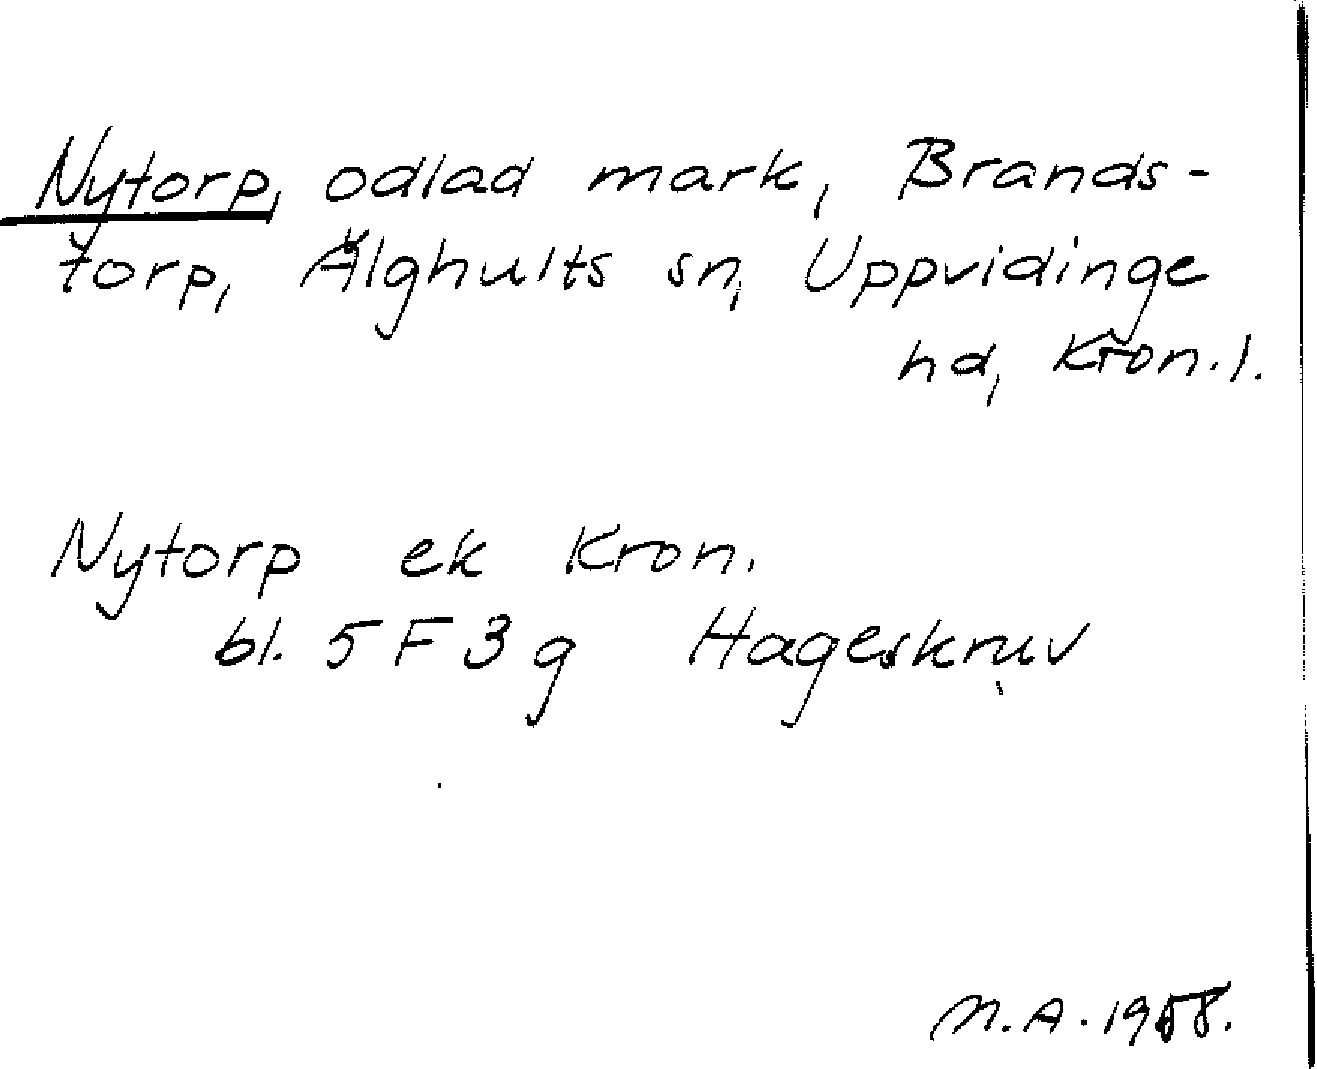 Nytorp, odlad mark, Brands-
torp, Älghults sn, Uppvidinge
hd, Kron. l.
Nytorp ek Kron.
bl. 5 F 3 g Hageskruv
M.A. 1958.